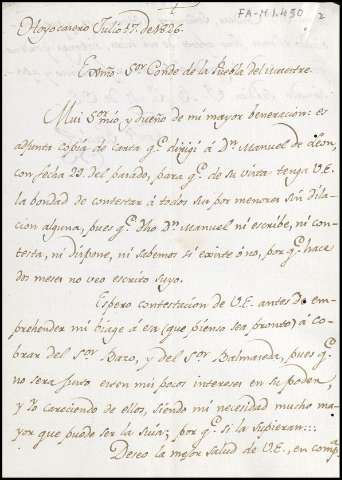 FA-M.1.450
2
Hoyocasero Julio 17. de 1826.
Exmo. Sor. Conde de la Puebla del Maestre.
Mui Sor. mio, y dueño de mi mayor beneracion: es
adjunta copia de carta qe. dirijí á Dn. Manuel de Leon,
con fecha 29. del pasado, para qe. de su vista tenga V.E.
la bondad de contestar á todos sus por menores sin dila-
cion alguna, pues qe. dho Dn. Manuel ni escribe, ni con-
testa, ni dispone, ni sabemos si existe ó no, por qe. hace
dos meses no veo escrito suyo.
Espero contestacion de V.E. antes de em-
prehender mi biage á esa (que pienso sea pronto) á co-
brar del Sor. Bazo, y del Sor. Balmaseda, pues qe.
no sera justo esten mis pocos intereses en su poder,
y Yo careciendo de ellos, siendo mi necesidad mucho ma-
yor que puede ser la suia; por qe. si la supieran:::
Deseo la mejor salud de V.E., en compa.